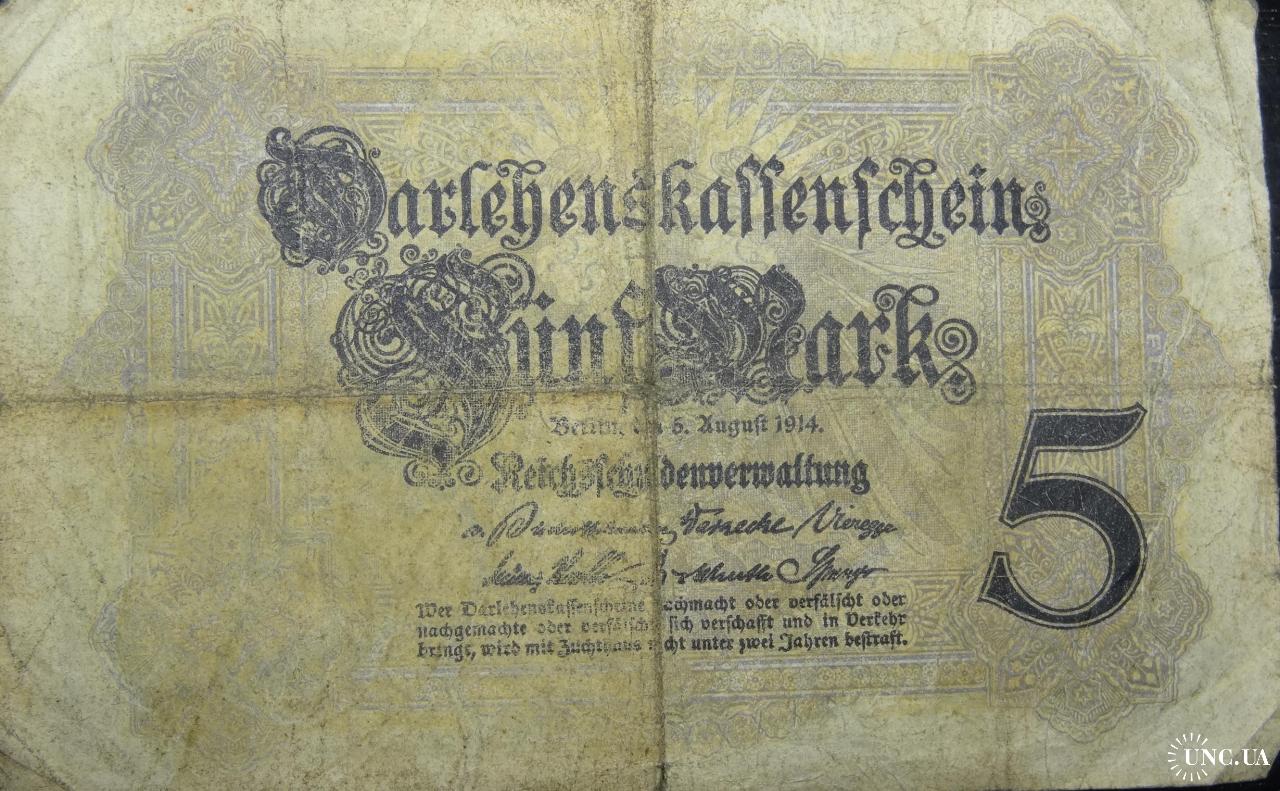 Darlehenskassenschein
Fünf Mark
Berlin, den 5. August 1914.
Reichsschuldenverwaltung
Warnecke Vieregge
Wer Darlehenskassenscheine nachmacht oder verfälscht oder
nachgemachte oder verfälschte sich verschafft und in Verkehr
bringt, wird mit Zuchthaus nicht unter zwei Jahren bestraft.
5
UNC.UA